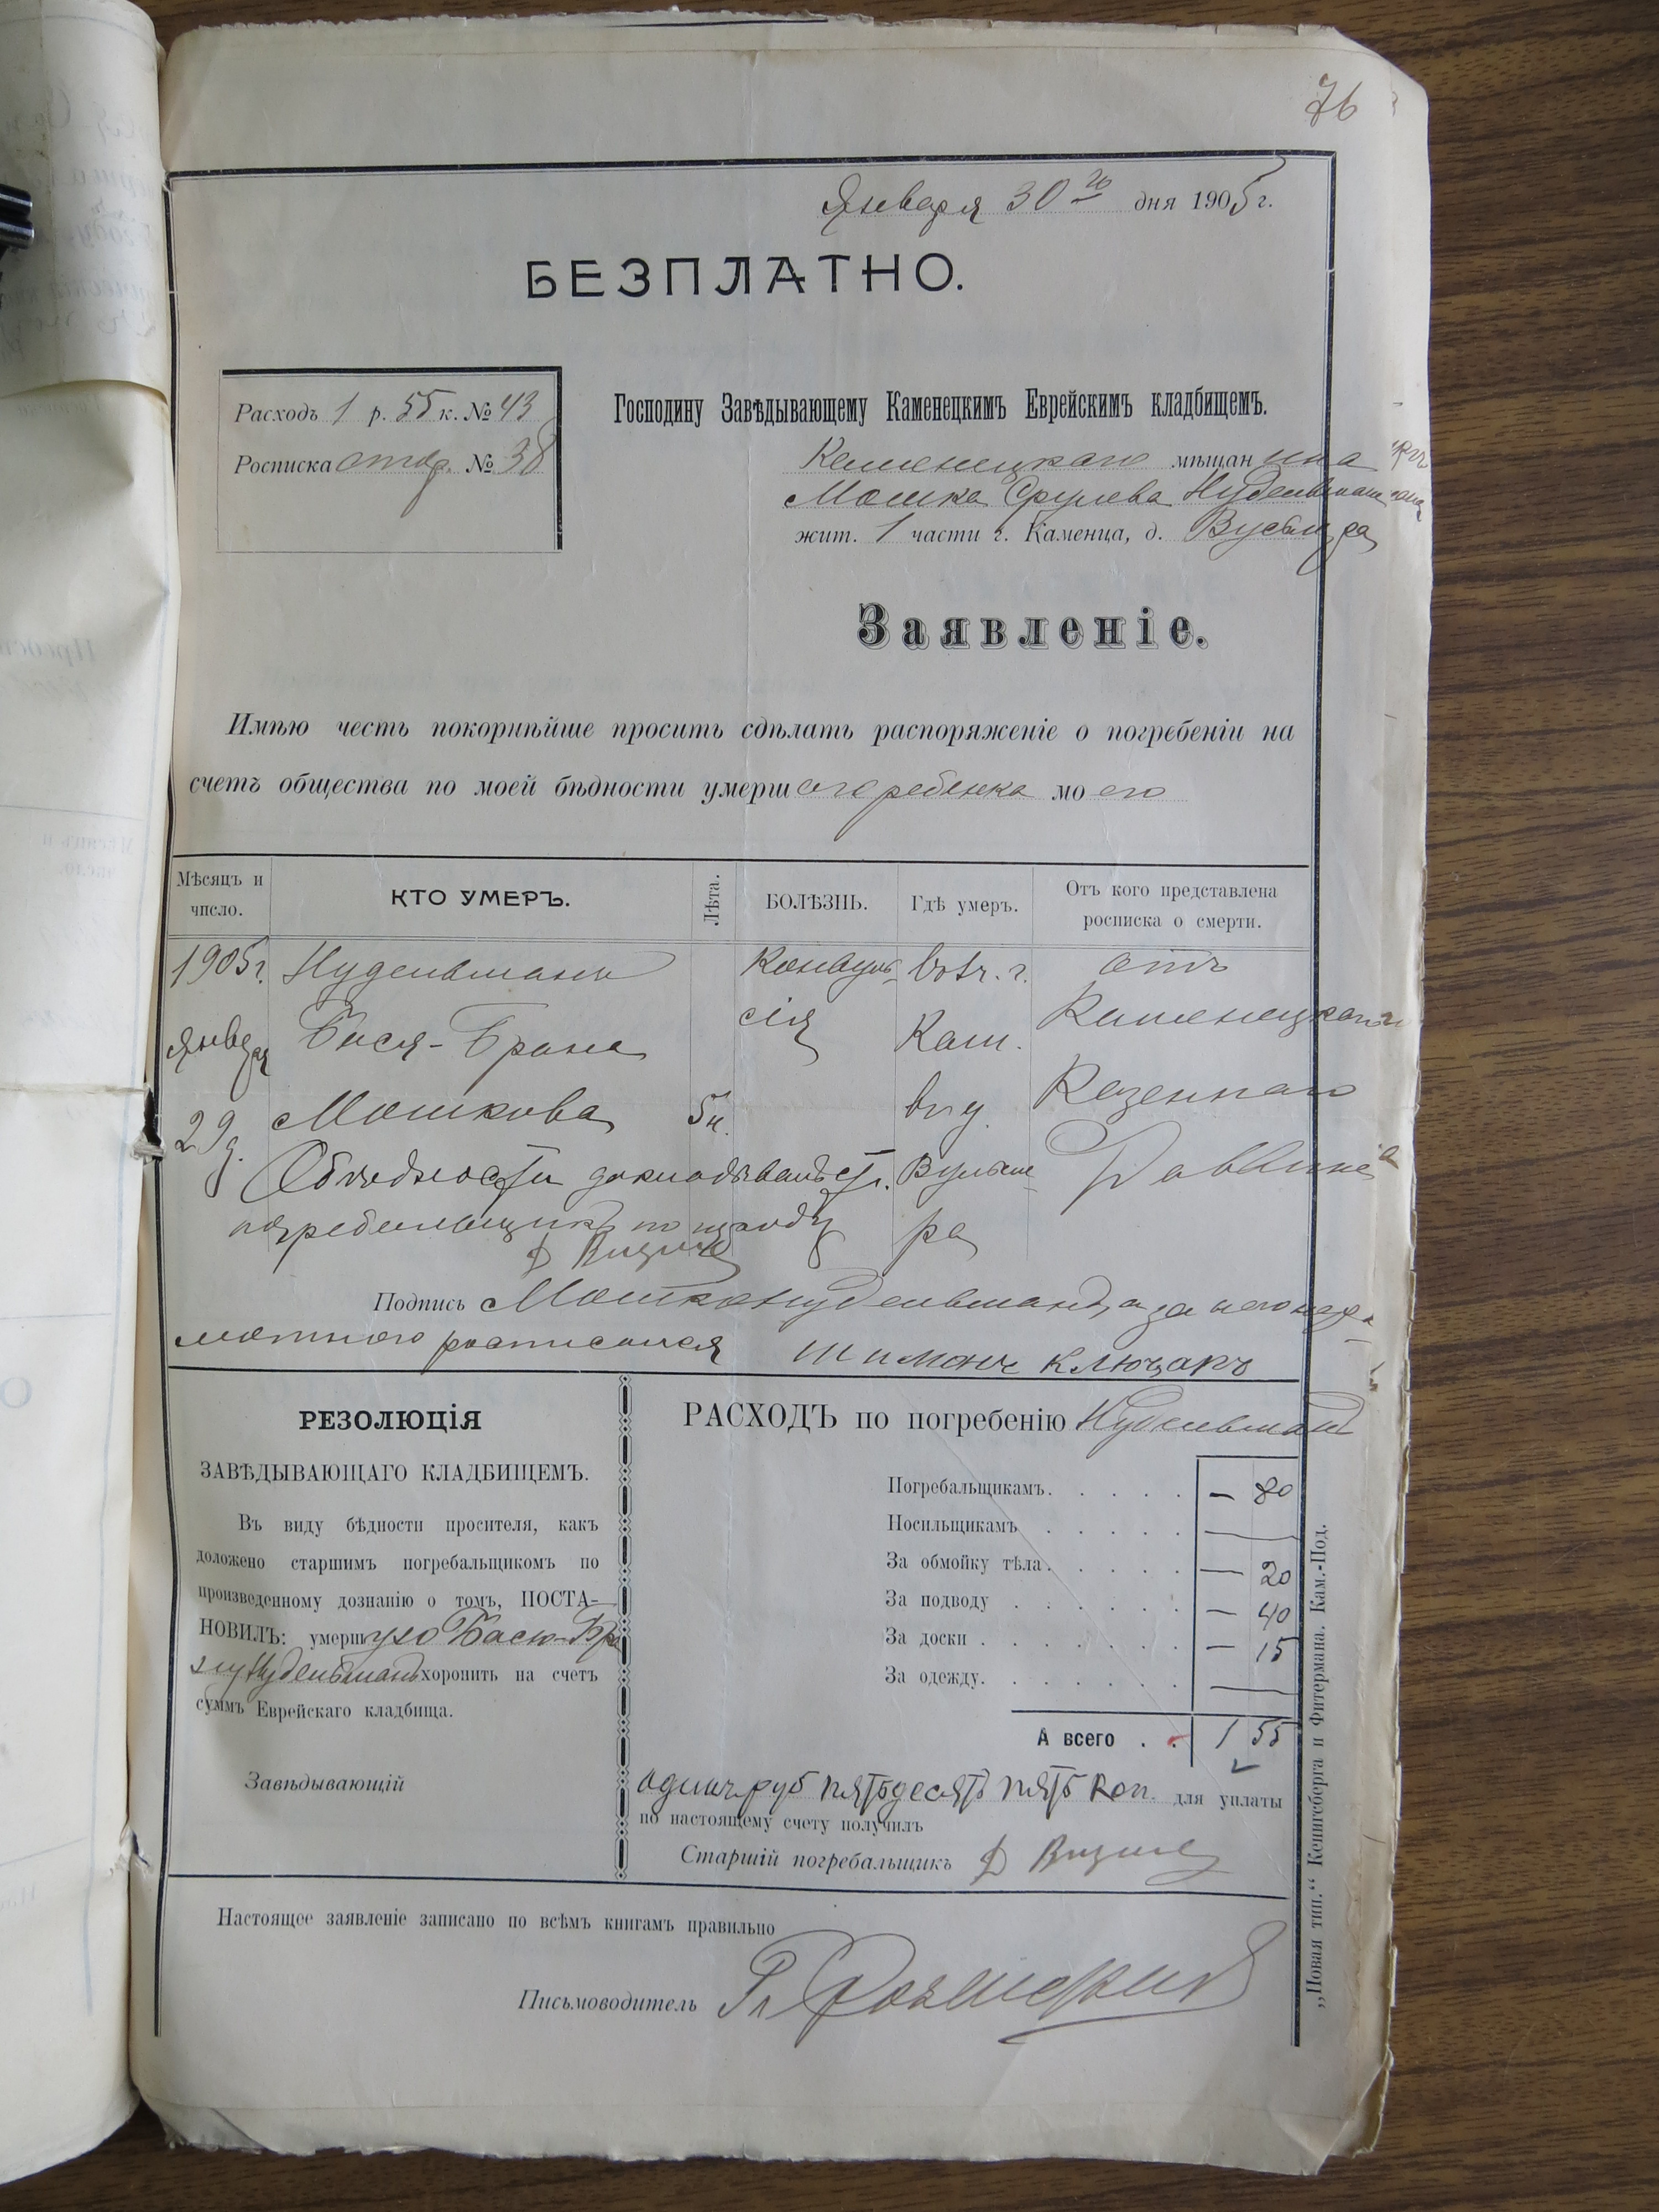 76
Января 30го дня 1905 г.
БЕЗПЛАТНО.
Расходъ 1 р. 55 к. № 43
Росписка № 38
Господину Завѣдывающему Каменецкимъ Еврейскимъ кладбищемъ.
Каменецкаго мѣщанина
Мошка Срулева Нудельмана
жит. 1 части г. Каменца, д.
Заявленіе.
Имѣю честь покорнѣйше просить сдѣлать распоряженіе о погребеніи на
счетъ общества по моей бѣдности умершаго ребенка моего
Мѣсяцъ и число.
КТО УМЕРЪ.
Лѣта.
БОЛѢЗНЬ.
Гдѣ умеръ.
Отъ кого представлена росписка о смерти.
1905 г. Нудельманъ Конвуль- въ г. отъ
Января Бися-Брана сія Кам. Каменецкаго
29 д. Мошкова 5 н. въ д. Казеннаго
О бѣдности докладываетъ ст. Вульше- Раввина
погребальщикъ по приходу ра
Д Визиле
Подпись Мошко Нудельманъ, а за него негра-
мотного росписался Шиманъ Ключаръ
РЕЗОЛЮЦІЯ
ЗАВѢДЫВАЮЩАГО КЛАДБИЩЕМЪ.
Въ виду бѣдности просителя, какъ
доложено старшимъ погребальщикомъ по
произведенному дознанію о томъ, ПОСТА-
НОВИЛЪ: умершую Басю-Бра
ну Нудельманъ хоронить на счетъ
суммъ Еврейскаго кладбища.
Завѣдывающій
РАСХОДЪ по погребенію Нудельманъ
Погребальщикамъ. . . . . — 80
Носильщикамъ . . . . . —
За обмойку тѣла. . . . . — 20
За подводу . . . . . . — 40
За доски . . . . . . . — 15
За одежду. . . . . . . —
А всего . . 1 55
одинъ руб пятьдесятъ пять коп. для уплаты
по настоящему счету получилъ
Старшій погребальщикъ Д Визиле
Настоящее заявленіе записано по всѣмъ книгамъ правильно
Письмоводитель
„Новая тип.“ Кенигсберга и Фитермана. Кам.-Под.